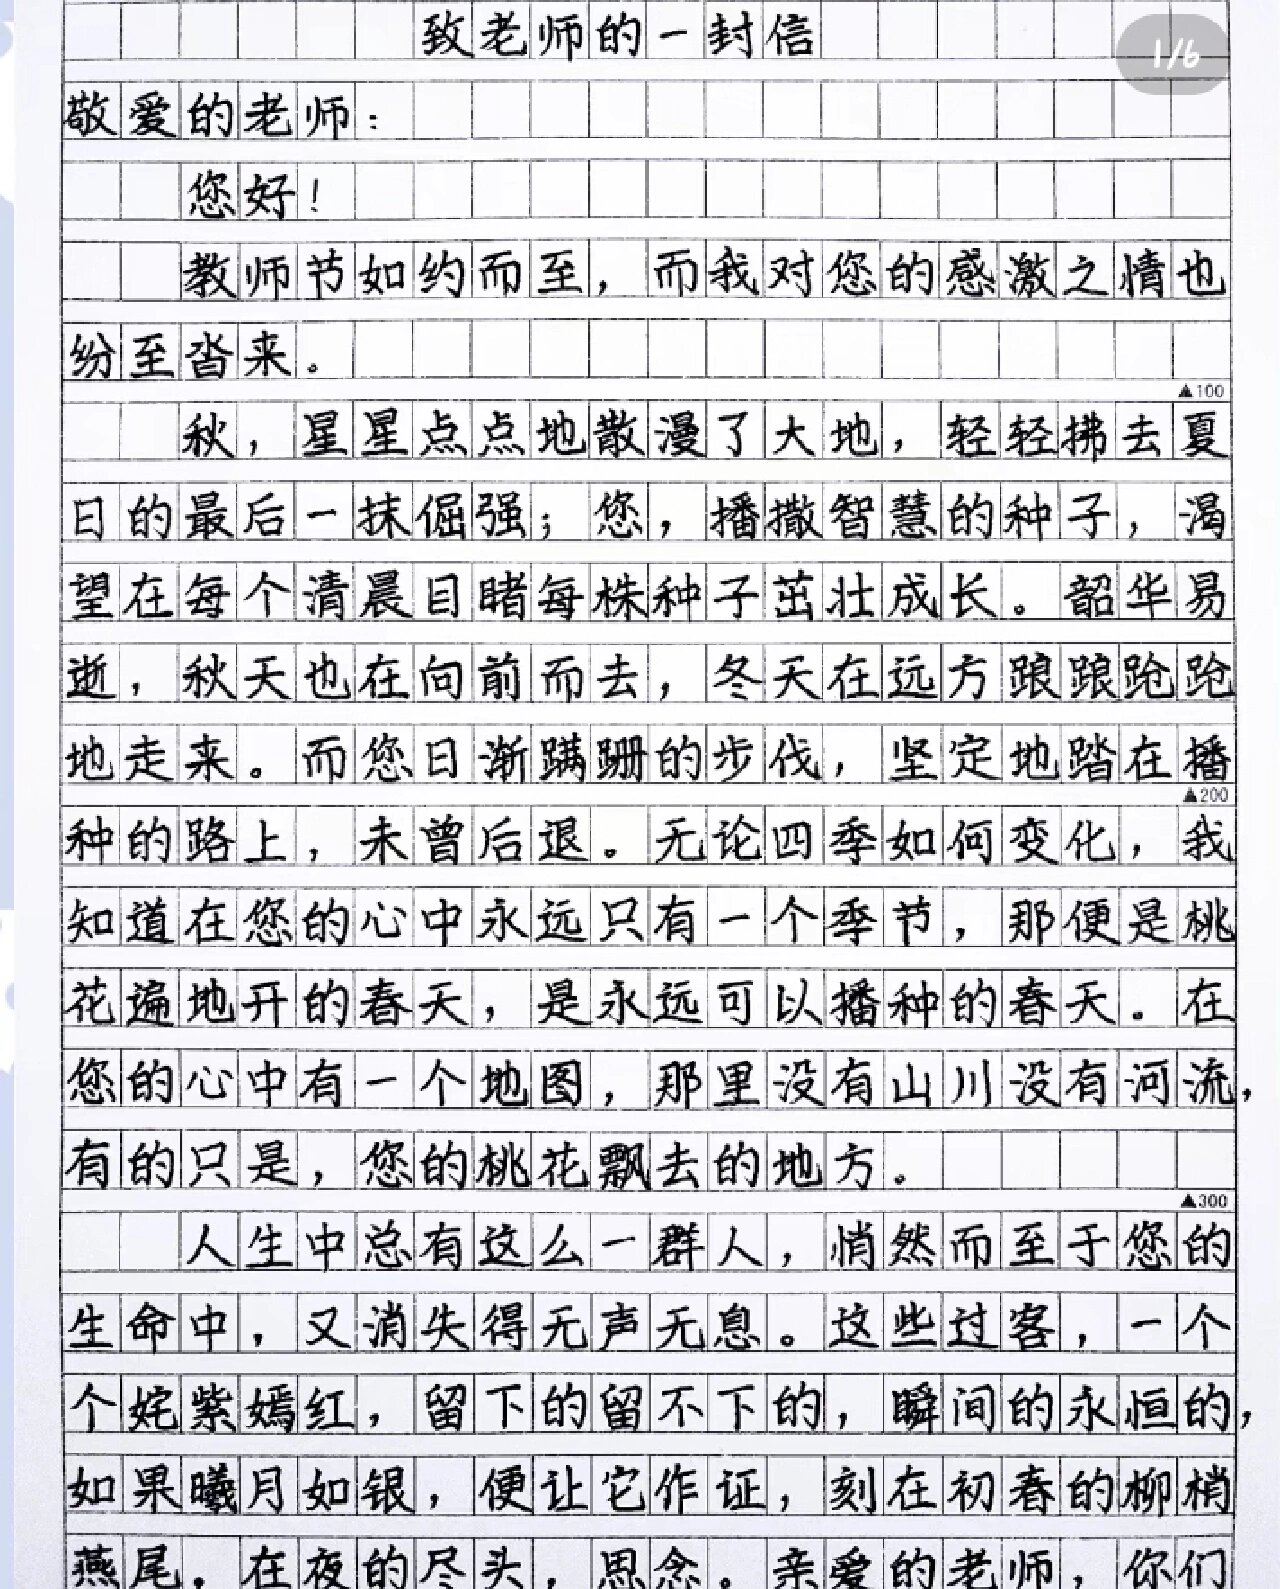 致老师的一封信
1/6
敬爱的老师：
您好！
教师节如约而至，而我对您的感激之情也
纷至沓来。
▲100
秋，星星点点地散漫了大地，轻轻拂去夏
日的最后一抹倔强；您，播撒智慧的种子，渴
望在每个清晨目睹每株种子茁壮成长。韶华易
逝，秋天也在向前而去，冬天在远方踉踉跄跄
地走来。而您日渐蹒跚的步伐，坚定地踏在播
▲200
种的路上，未曾后退。无论四季如何变化，我
知道在您的心中永远只有一个季节，那便是桃
花遍地开的春天，是永远可以播种的春天。在
您的心中有一个地图，那里没有山川没有河流，
有的只是，您的桃花飘去的地方。
▲300
人生中总有这么一群人，悄然而至于您的
生命中，又消失得无声无息。这些过客，一个
个姹紫嫣红，留下的留不下的，瞬间的永恒的，
如果曦月如银，便让它作证，刻在初春的柳梢
燕尾，在夜的尽头，思念。亲爱的老师，你们